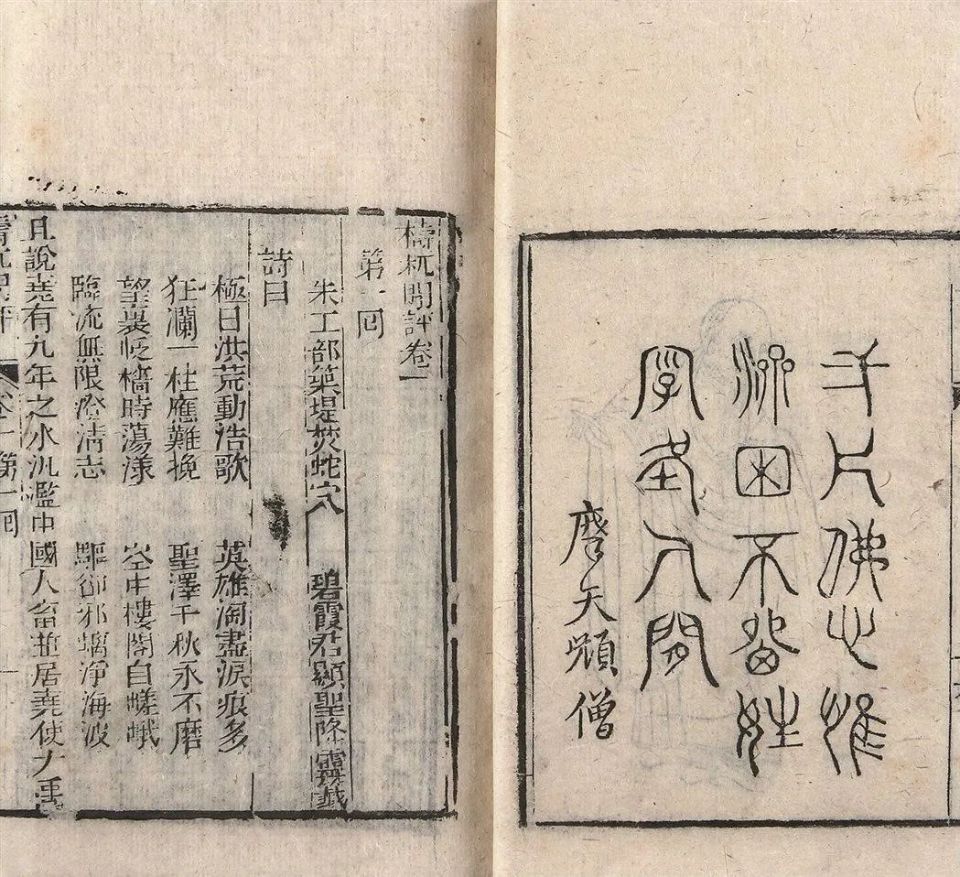 片佛心惟
濟困不留姓
字在人間
摩天僧
檮杌閒評卷一
第一回
朱工部築堤焚蛇穴 碧霞君顯聖降靈籤
詩曰
極目洪荒動浩歌 英雄淘盡淚痕多
狂瀾一柱應難挽 聖澤千秋永不磨
望裏帆檣時蕩漾 空中樓閣自嵯峨
臨流無限澄清志 驅卻邪螭淨海波
且說堯有九年之水氾濫中國人畜並居堯使大禹
檮杌閒評 卷一第一回